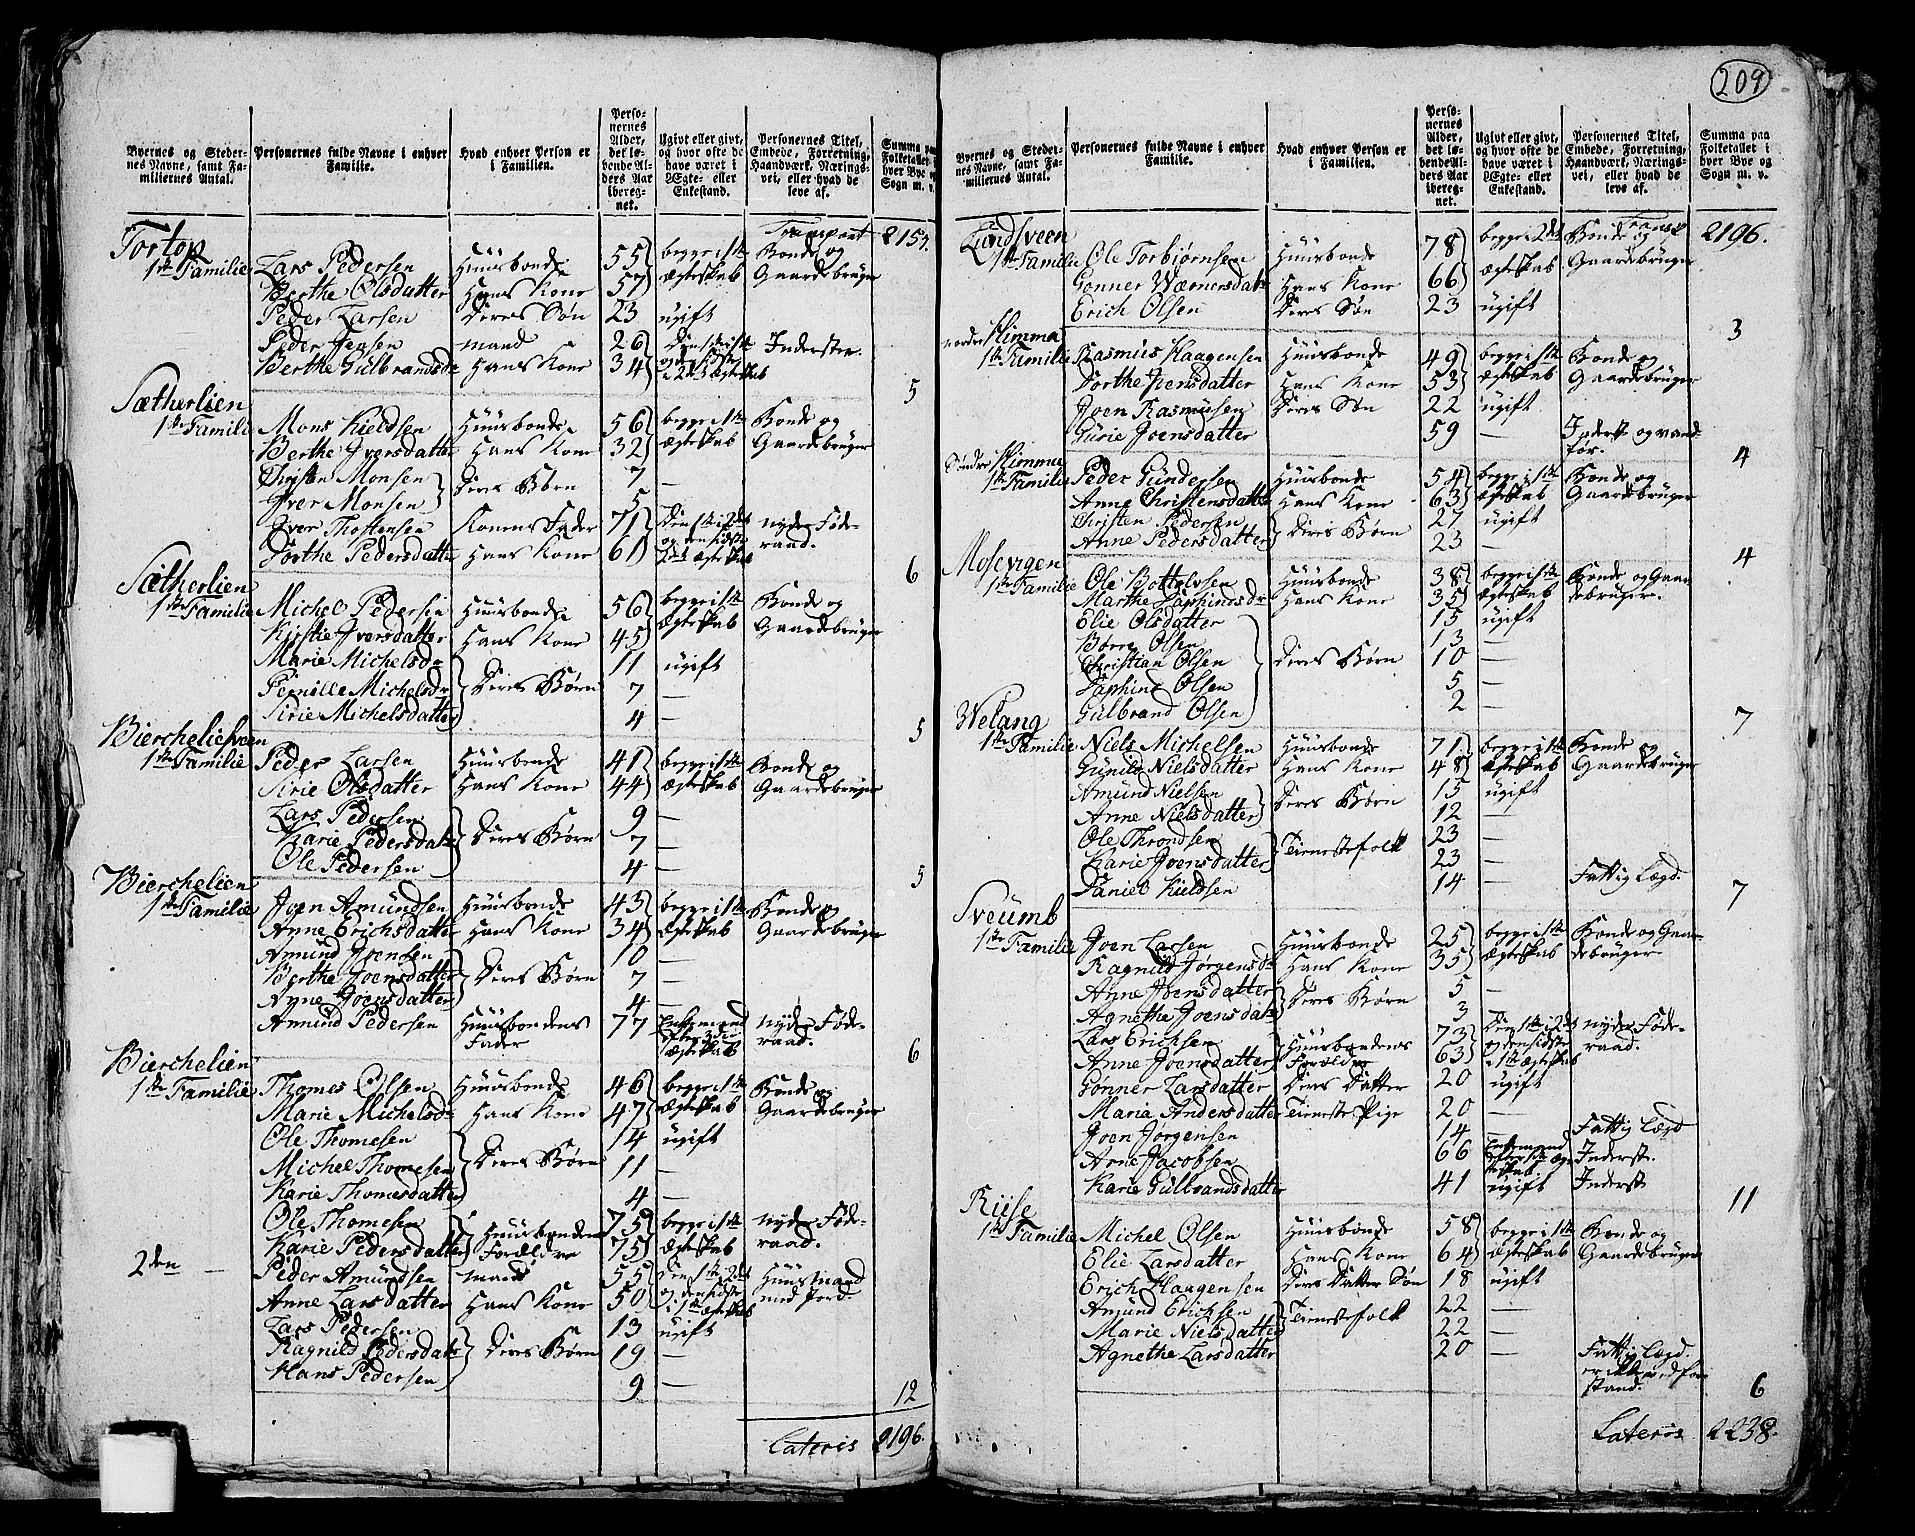 209
Byernes og Steder-
nes Navne, samt Fa-
miliernes Antal.
Personernes fulde Navne i enhver
Familie.
Hvad enhver Person er
i Familien.
Perso-
nernes
Alder,
det lø-
bende Al-
ders Aar
iberegnet.
Ugivt eller givt,
og hvor ofte de
have været i
Ægte- eller
Enkestand.
Personernes Titel,
Embede, Forretning,
Haandværk, Nærings-
vei, eller hvad de
leve af.
Summa paa
Folketallet i
hver Bye og
Sogn m. v.
Transport 2154.
Tortop
1ste Familie Lars Pedersen Huusbonde 55 begge i 1ste Bonde og
Berthe Olsdatter Hans Kone 57 Ægteskab Gaardebruger
Peder Larsen Deres Søn 23 ugift
Peder Jensen mand 26 Inderster.
Berthe Gulbrandsdr Hans Kone 34
5
Sætherlien
1ste Familie Mons Kieldsen Huusbonde 56 begge i 1ste Bonde og
Berthe Iversdatter Hans Kone 32 Ægteskab Gaardebruger
Christen Monsen Deres Børn 7 —
Iver Monsen 5 —
Iver Thostensen Konens Fader 71 Den 1ste i 2det nyder Føde-
Dorthe Pedersdatter Hans Kone 61 og den sidste 2det Ægteskab raad.
6
Sætherlien
1ste Familie Michel Pedersen Huusbonde 56 begge i 1ste Bonde og
Kirstie Iversdatter Hans Kone 45 Ægteskab Gaardebruger
Marie Michelsdr 11 ugift
Pernille Michelsdr Deres Børn 7 —
Sirie Michelsdatter 4 —
5
Biercheliesveen
1ste Familie Peder Larsen Huusbonde 41 begge i 1ste Bonde og
Sirie Olsdatter Hans Kone 44 Ægteskab Gaardebruger
Lars Pedersen 9 —
Karie Pedersdatr Deres Børn 7 —
Ole Pedersen 4 —
5
Bierchelien
1ste Familie Joen Amundsen Huusbonde 43 begge i 1ste Bonde og
Anne Erichsdatter Hans Kone 34 Ægteskab Gaardebruger
Amund Joensen 10 —
Berthe Joensdatter Deres Børn 7 —
Anne Joensdatter 4 —
Amund Pedersen Huusbondens 77 Enkemand nyder Føde-
Fader Ægteskab raad.
6
Bierchelien
1ste Familie Thomes Olsen Huusbonde 46 begge i 1ste Bonde og
Marie Michelsdr Hans Kone 47 Ægteskab Gaardebruger
Ole Thomesen 14 ugift
Michel Thomesen Deres Børn 11 —
Karie Thomesdatter 4 —
Ole Thomesen Huusbondens 75 begge i 1ste nyder Føde-
Karie Pedersdatter Forældre 75 Ægteskab raad.
2den — Peder Amundsen mand 55 Den 1ste i 2det Huusmand
Anne Larsdatter Hans Kone 50 og den sidste i 1ste Ægteskab med Jord.
Lars Pedersen 13 ugift
Ragnild Pedersdatr Deres Børn 19 —
Hans Pedersen 9 —
12
Lateris 2196.
Byernes og Steder-
nes Navne, samt Fa-
miliernes Antal.
Personernes fulde Navne i enhver
Familie.
Hvad enhver Person er
i Familien.
Perso-
nernes
Alder,
det lø-
bende Al-
ders Aar
iberegnet.
Ugivt eller givt,
og hvor ofte de
have været i
Ægte- eller
Enkestand.
Personernes Titel,
Embede, Forretning,
Haandværk, Nærings-
vei, eller hvad de
leve af.
Summa paa
Folketallet i
hver Bye og
Sogn m. v.
Transp 2196.
Lundsveen
1ste Familie Ole Torbjørnsen Huusbonde 78 begge i 2det Bonde og
Gonner Wærnersdatr Hans Kone 66 Ægteskab Gaardebruger
Erich Olsen Deres Søn 23 ugift
3
nordre Klimma
1ste Familie Rasmus Haagensen Huusbonde 49 begge i 1ste Bonde og
Dorthe Joensdatter Hans Kone 53 Ægteskab Gaardebruger
Joen Rasmusen Deres Søn 22 ugift
Gurie Joensdatter 59 — Inderst og vand-
før.
4
Søndre Klimma
1ste Familie Peder Gundersen Huusbonde 54 begge i 1ste Bonde og
Anne Christensdattr Hans Kone 63 Ægteskab Gaardebruger
Christen Pedersen 27 ugift
Anne Pedersdatter Deres Børn 23 —
4
Mosevigen
1ste Familie Ole Bottolvsen Huusbonde 38 begge i 1ste Bonde og Gaar
Marthe Daphindsdr Hans Kone 35 Ægteskab debruger.
Elie Olsdatter 15 ugift
Børre Olsen 13 —
Christian Olsen Deres Børn 10 —
Daphind Olsen 5 —
Gulbrand Olsen 2 —
7
Welang
1ste Familie Niels Michelsen Huusbonde 71 begge i 1ste Bonde og
Gunild Nielsdatter Hans Kone 48 Ægteskab Gaardebruger
Amund Nielsen 15 ugift
Anne Nielsdatter Deres Børn 12 —
Ole Throndsen 23 —
Karie Joensdatter Tienestefolk 23 —
Daniel Kieldsen 14 — Fattig Lægd.
7
Sveumb
1ste Familie Joen Larsen Huusbonde 25 begge i 1ste Bonde og Gaar
Ragnild Jørgensdr Hans Kone 35 Ægteskab debruger
Anne Joensdatter Deres Børn 5 —
Agnethe Joensdatr 3
Lars Erichsen Huusbondens 73 Den 1ste i 2det nyder Føde-
Anne Joensdatter Forældre 63 og den sidste i 1ste Ægteskab raad.
Gonner Larsdatter Deres Datter 20 ugift
Maria Andersdatter Tieneste Pige 20 —
Joen Jørgensen 14 — Fattig Lægd
Arne Jacobsen 66 Enkemand Inderst.
Karie Gulbrandsdatter 41 ugift Inderst
11
Riise
1ste Familie Michel Olsen Huusbonde 58 begge i 1ste Bonde og
Elie Larsdatter Hans Kone 64 Ægteskab Gaardebruger
Erich Haagensen Deres Datter Søn 18 ugift
Amund Erichsen 22 —
Marie Nielsdatter Tienestefolk 22 —
Agnethe Larsdatter 20 — Fattig Lægd.
stand.
6
Lateris 2238.